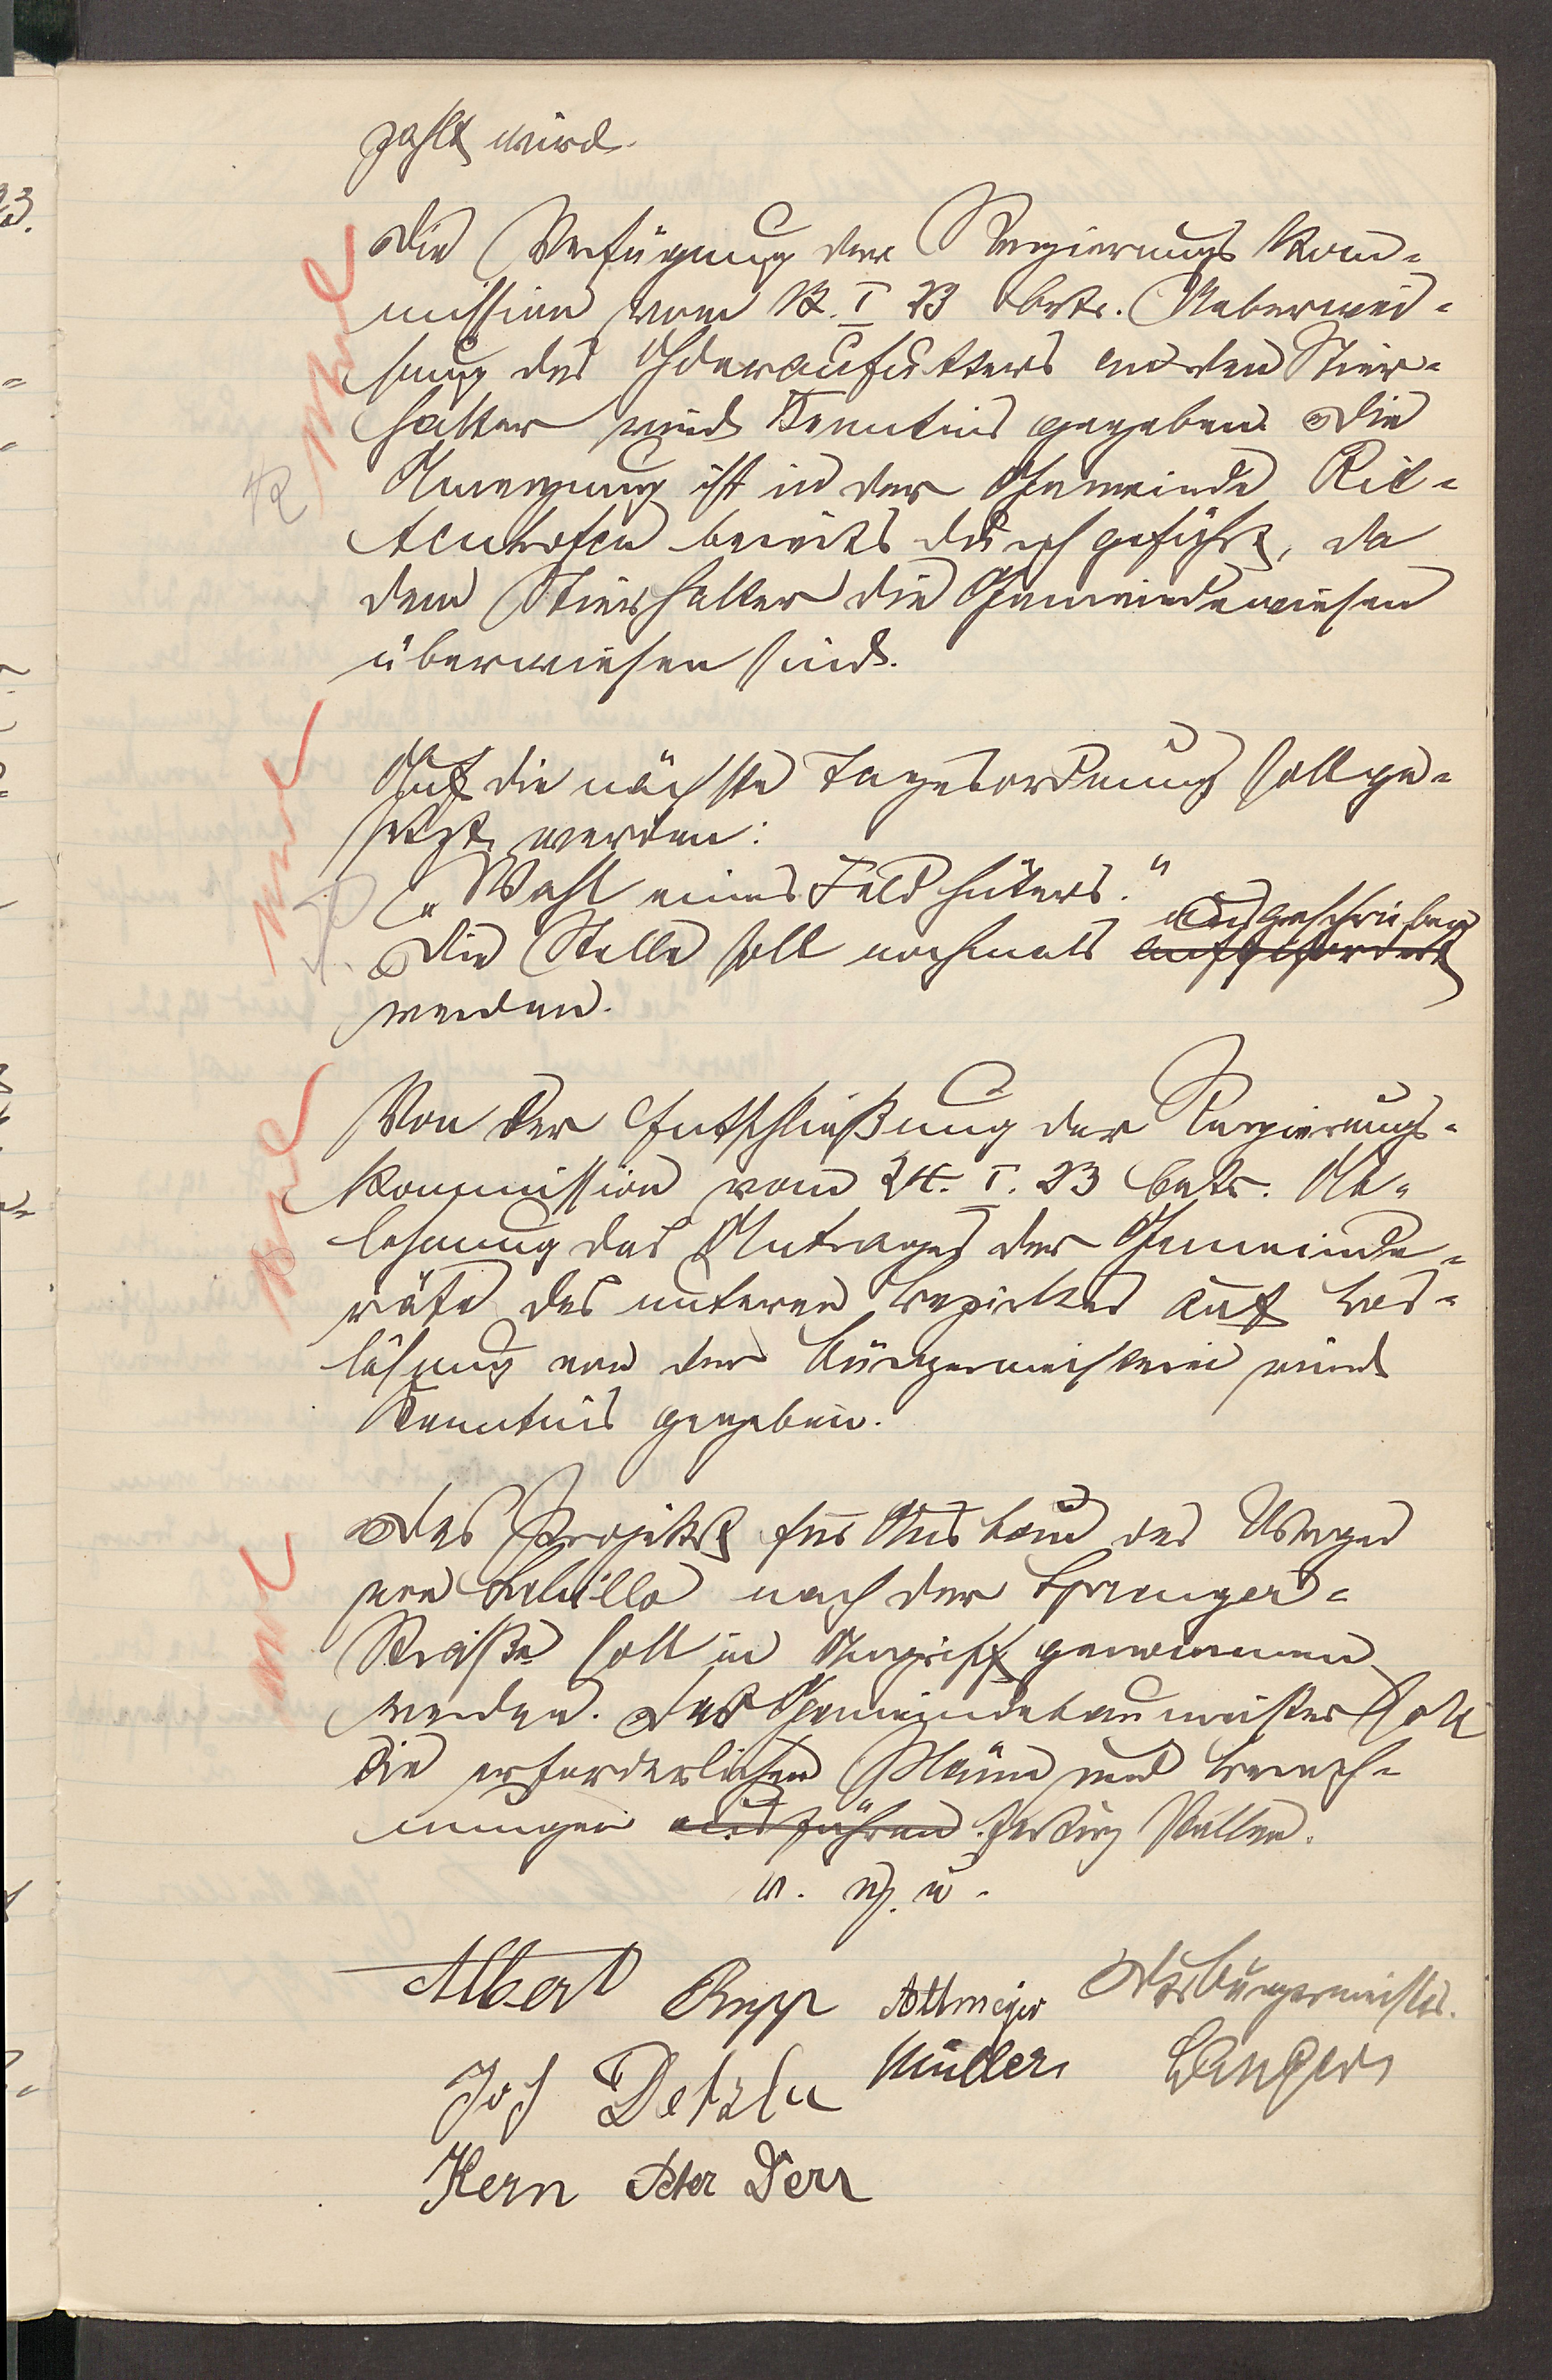 zahlt wird.
Die Verfügung der Regierungs Kom-
mission vom 12. I 23 betr. Ueberwei-
sung des Oedlandfutters an den Stier-
halter wird Kenntnis gegeben. Die
Anregung ist in der Gemeinde Ril-
chenhofen bereits durchgeführt, da
dem Stierhalter die Gemeindewiesen
überwiesen sind.
Auf die nächste Tagesordnung soll ge-
setzt werden:
„Wahl eines Feldhüters."
ausgeschrieben
Die Stelle soll nochmals aufgefordert
werden.
Von der Entschließung der Regierungs-
kommission vom 24. I. 23 betr. Ab-
lehnung des Antrages der Gemeinde-
räte des unteren Bezirkes auf Los-
lösung von der Bürgermeisterei wird
Kenntnis gegeben.
Das Projekt für Ausbau des Weges
von nach der Sprenger-
Straße soll in Angriff genommen
werden. Der Gemeindebaumeister soll
die erforderlichen Pläne und Berech-
nungen ausführen fertig stellen.
v. g. u.
Albert Rupp Altmeyer Der Bürgermeister.
Jos Detzler Müller Wangers
Kern Peter Derr